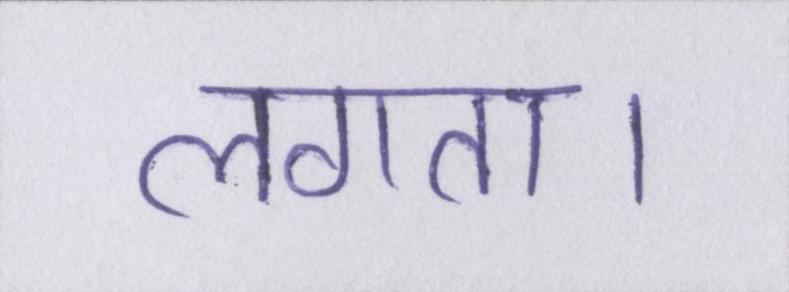 लगता।